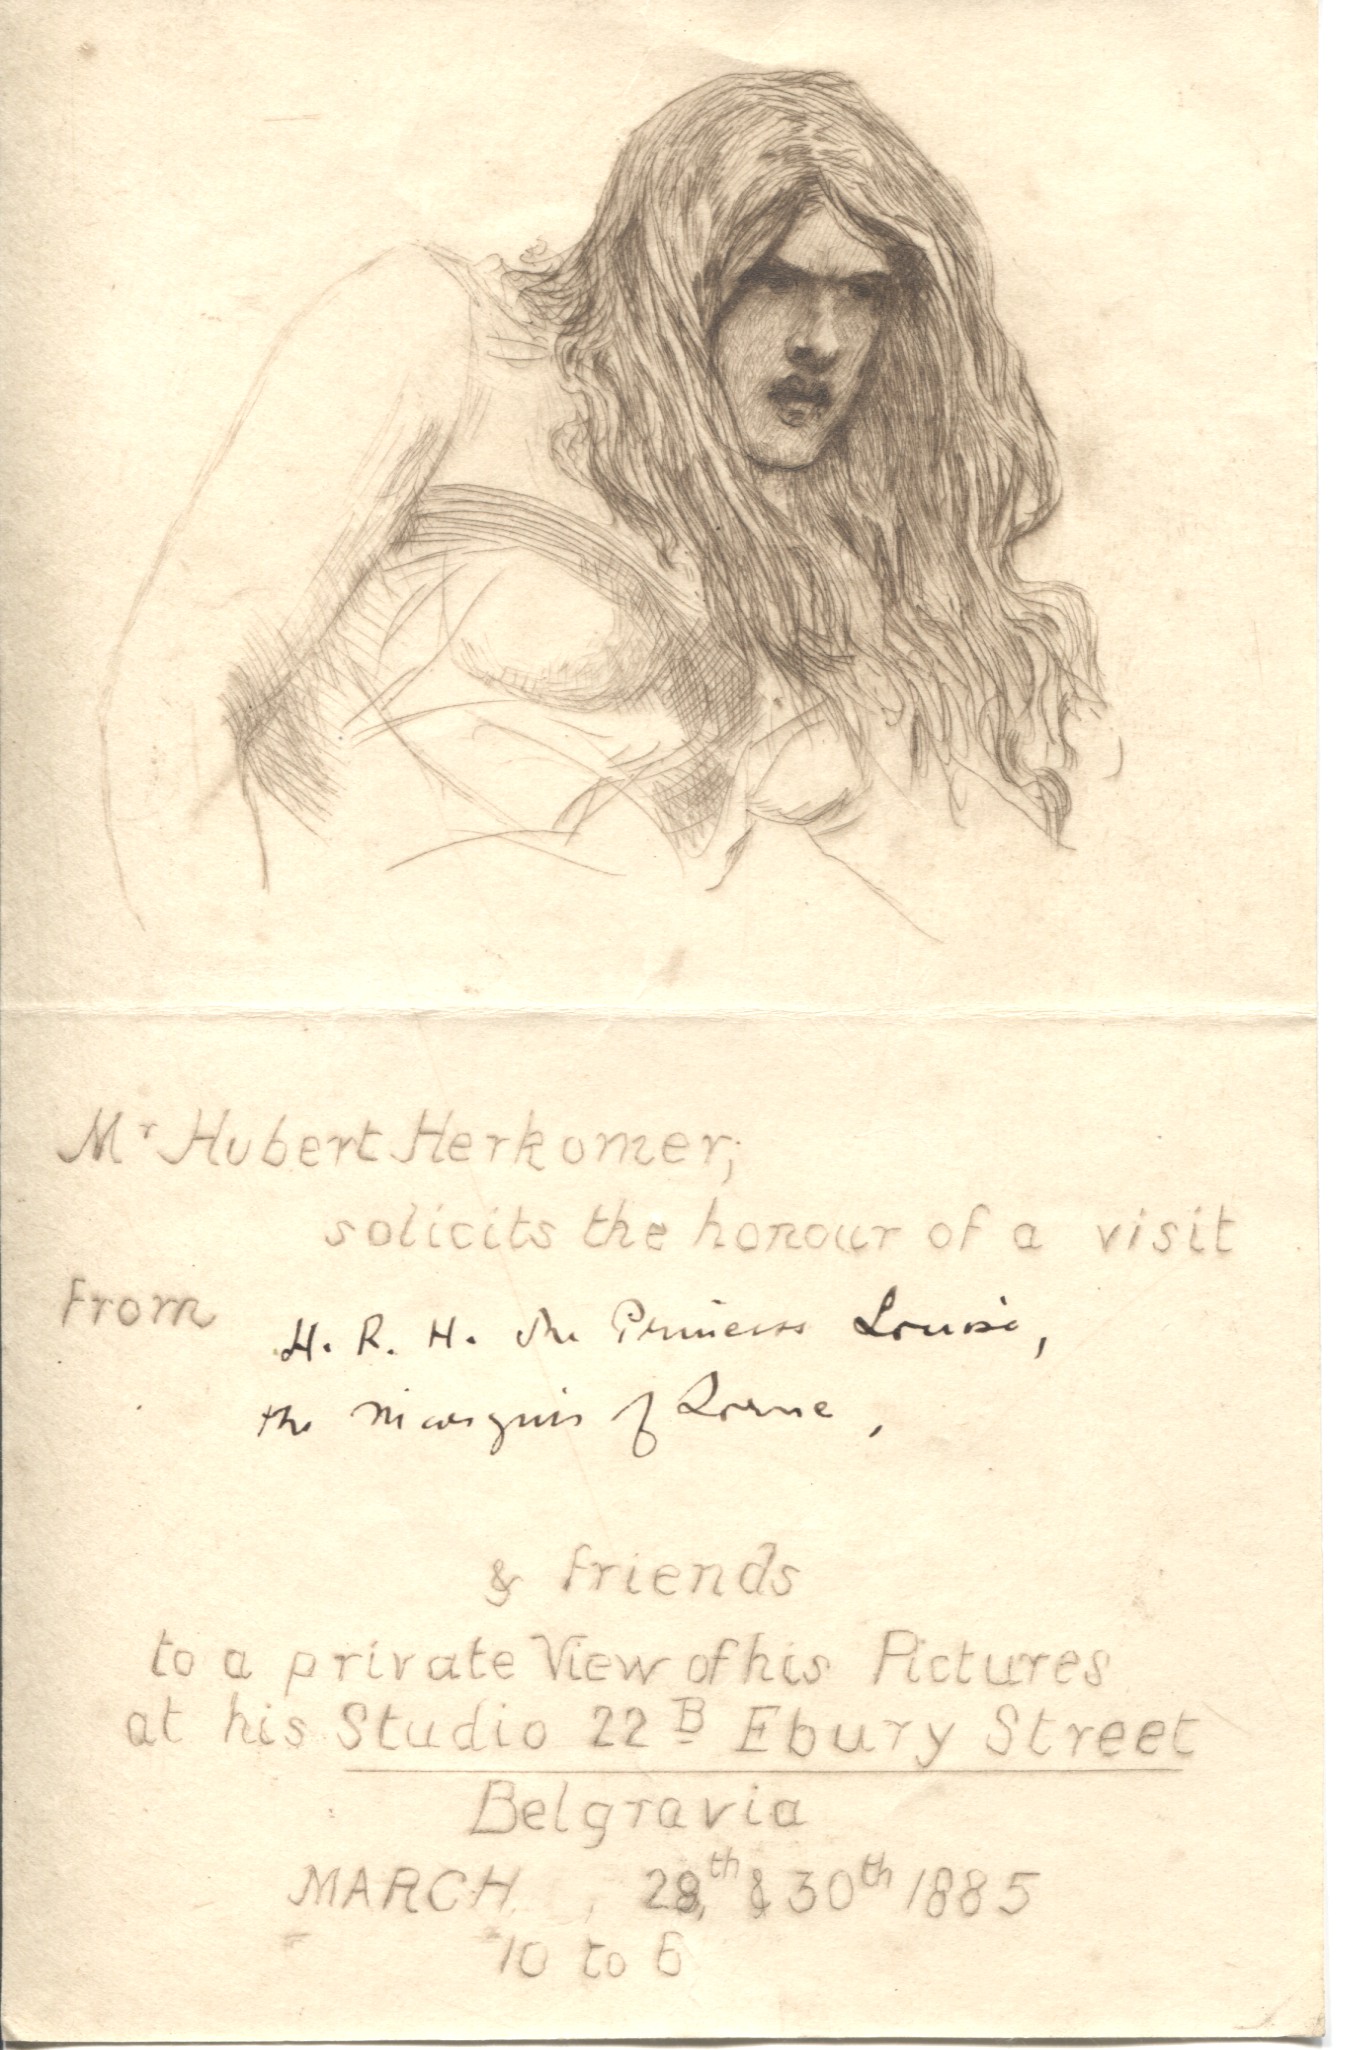 Mr Hubert Herkomer,
solicits the honour of a visit
from
H. R. H. the Princess Louise,
the Marquis of Lorne,
& friends
to a private View of his Pictures
at his Studio 22B Ebury Street
Belgravia
MARCH, 28th & 30th 1885
10 to 6